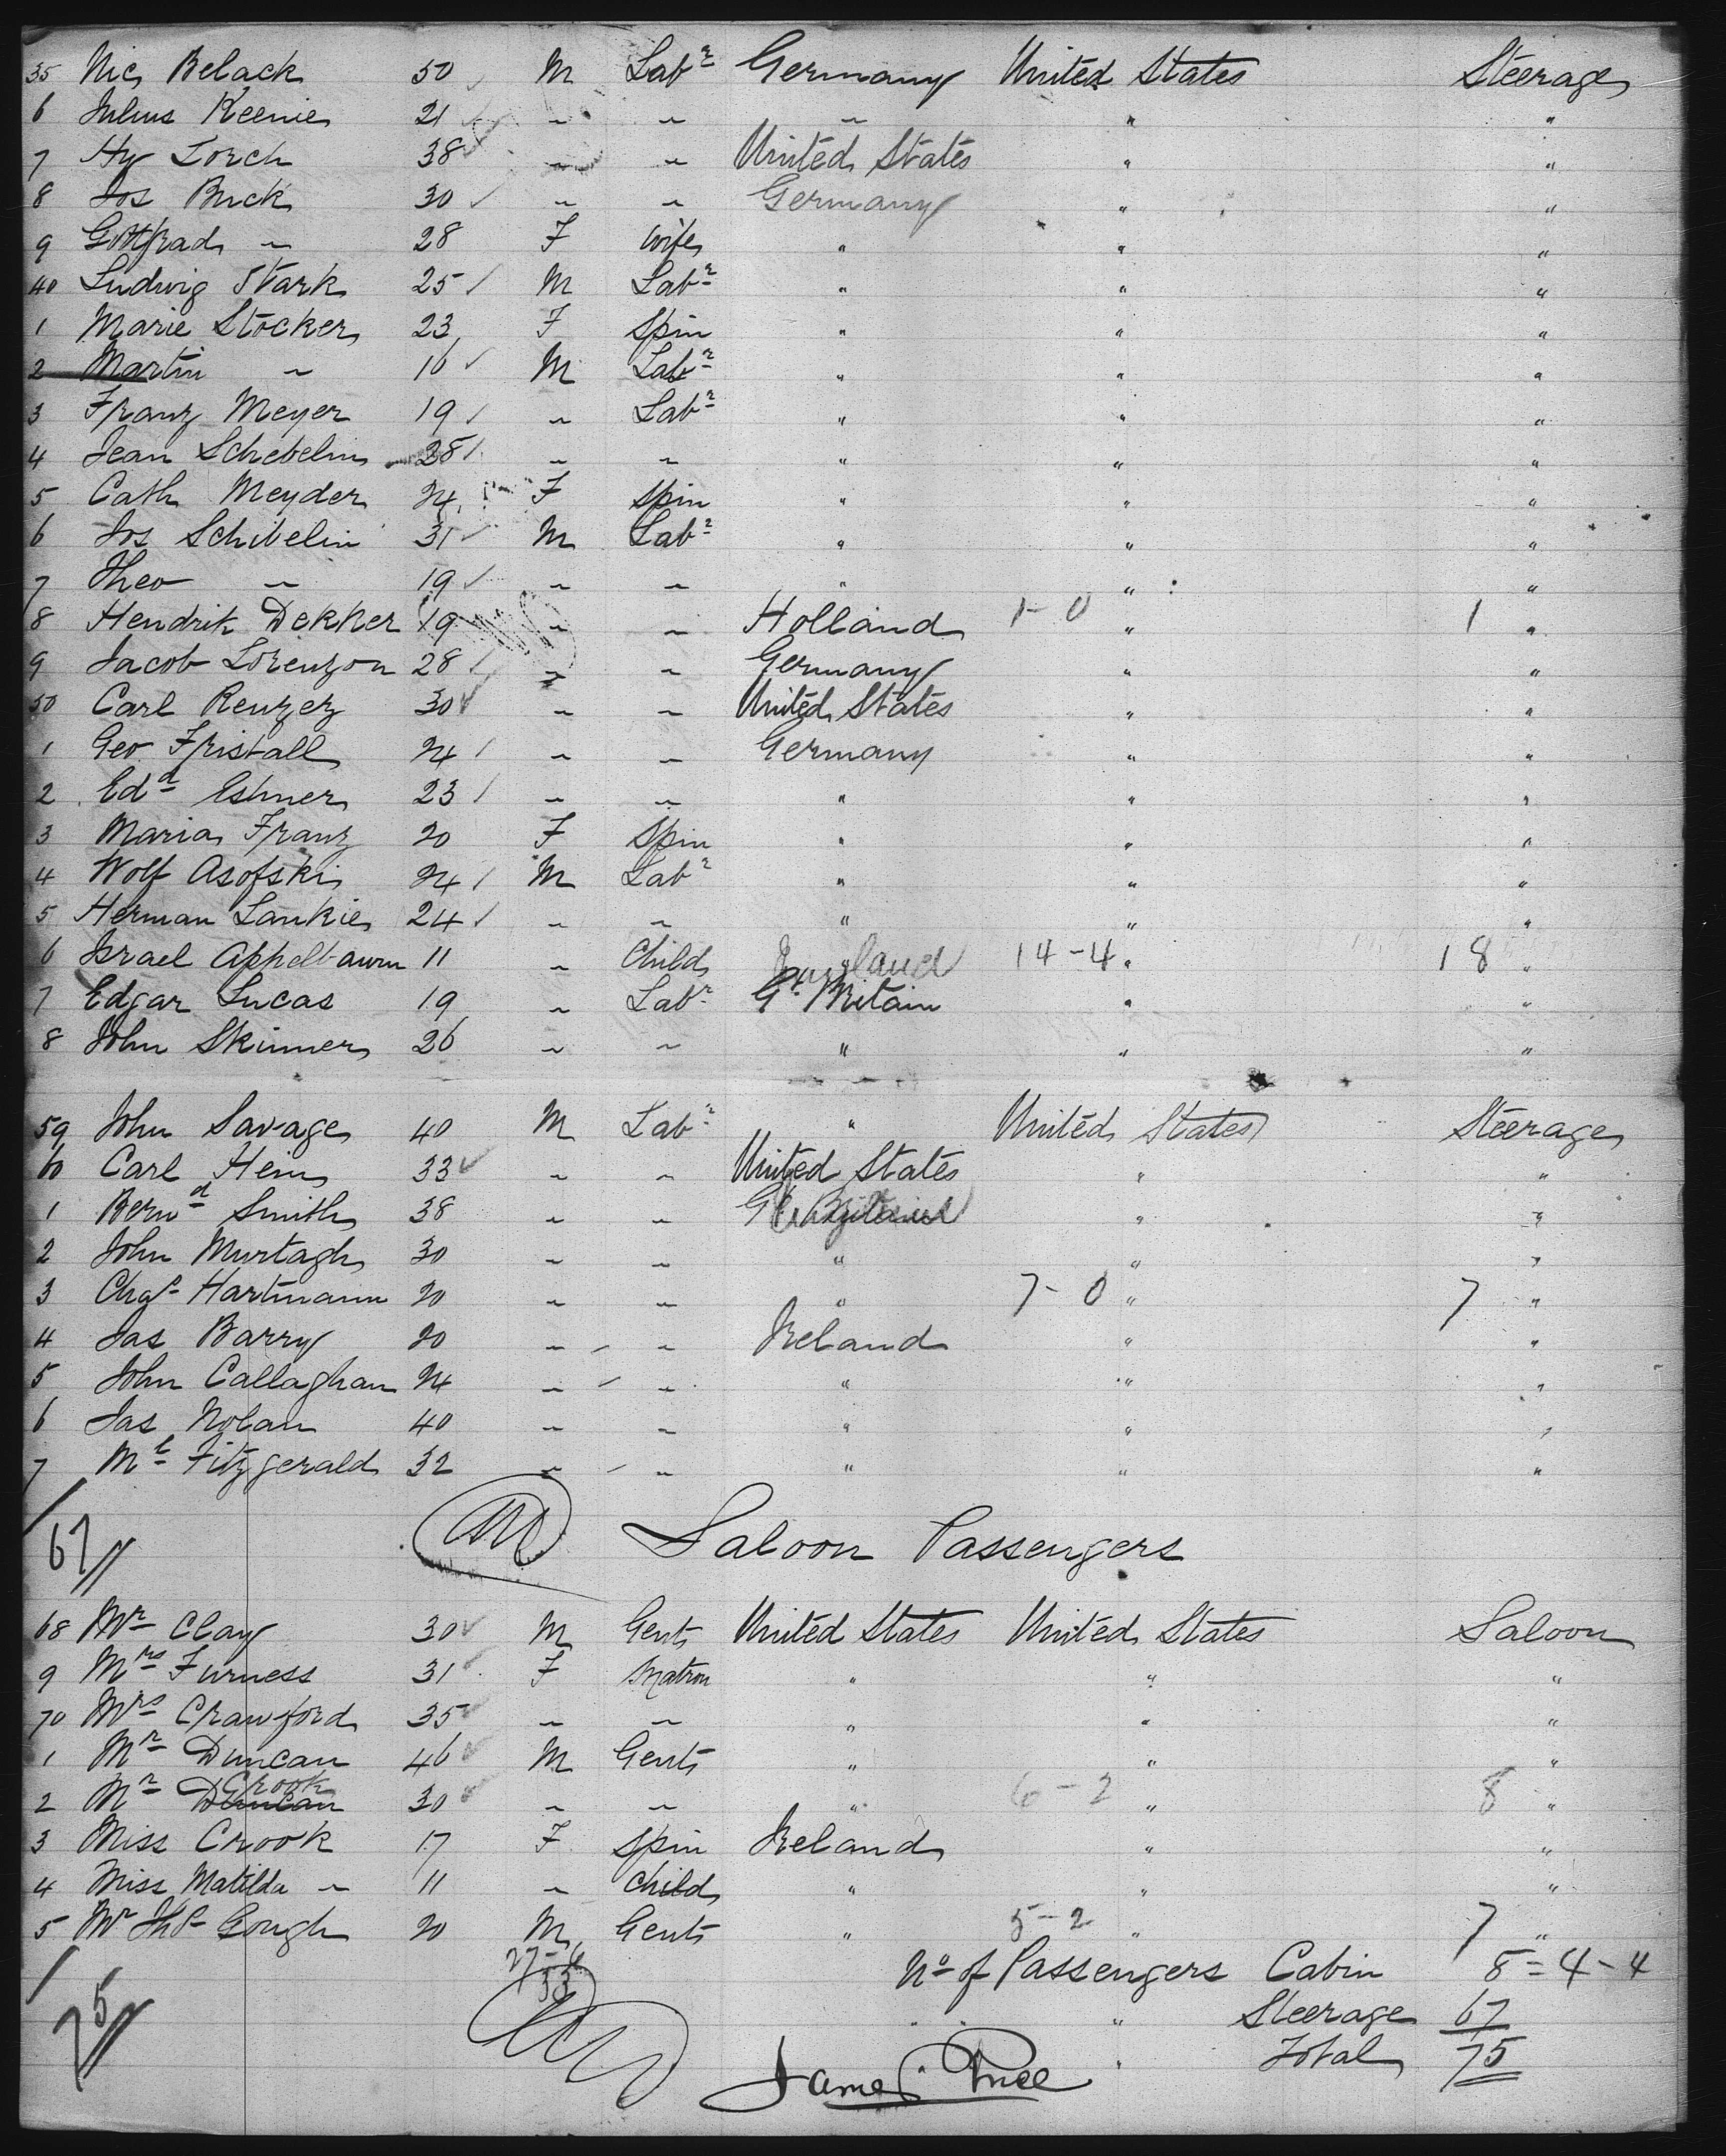 35 Nic Belack 50 M Labr Germany United States Steerage
6 Julius Keenie 21 " " " " "
7 Hy Lorch 38 " " United States " "
8 Jos Buck 30 " " Germany " "
9 Gottfrad " 28 F wife " " "
40 Ludwig Stark 25 M Labr " " "
1 Marie Stocker 23 F Spin " " "
2 Martin " 16 M Labr " " "
3 Franz Meyer 19 " Labr " " "
4 Jean Schebelin 25 " " " " "
5 Cath Meyder 24 F Spin " " "
6 Jos Schibelin 31 M Labr " " "
7 Theo " 19 " " " " "
8 Hendrik Dekker 19 " " Holland 1-0 " 1 "
9 Jacob Lorenzon 28 " " Germany " "
50 Carl Renzez 30 " " United States " "
1 Geo Fristall 24 " " Germany " "
2 Edd Eshner 23 " " " " "
3 Maria Franz 20 F Spin " " "
4 Wolf Asofski 24 M Labr " " "
5 Herman Lankie 24 " " " " "
6 Israel Appelbaum 11 " Child " 14-4 " 18 "
7 Edgar Lucas 19 " Labr Gt Britain " "
8 John Skinner 26 " " " " "
59 John Savage 40 M Labr " United States Steerage
60 Carl Hein 33 " " United States " "
1 Bernd Smith 38 " " Gt Britain " "
2 John Murtagh 30 " " " " "
3 Chas Hartmann 20 " " " 7-0 " 7 "
4 Jas Barry 20 " " Ireland " "
5 John Callaghan 24 " " " " "
6 Jas Nolan 40 " " " " "
7 Ml Fitzgerald 32 " " " " "
67
Saloon Passengers
68 Mr Clay 30 M Gent United States United States Saloon
9 Mrs Furness 31 F Matron " " "
70 Mrs Crawford 35 " " " " "
1 Mr Duncan 46 M Gent " " "
2 Mr Duncan Crook 30 " " " 6-2 " 8 "
3 Miss Crook 17 F Spin Ireland " "
4 Miss Matilda " 11 " Child " " "
5 Mr Ths Gough 20 M Gent " 5-2 " 7 "
No of Passengers Cabin 8 = 4-4
" " Steerage 67
" Total 75
75
James Price